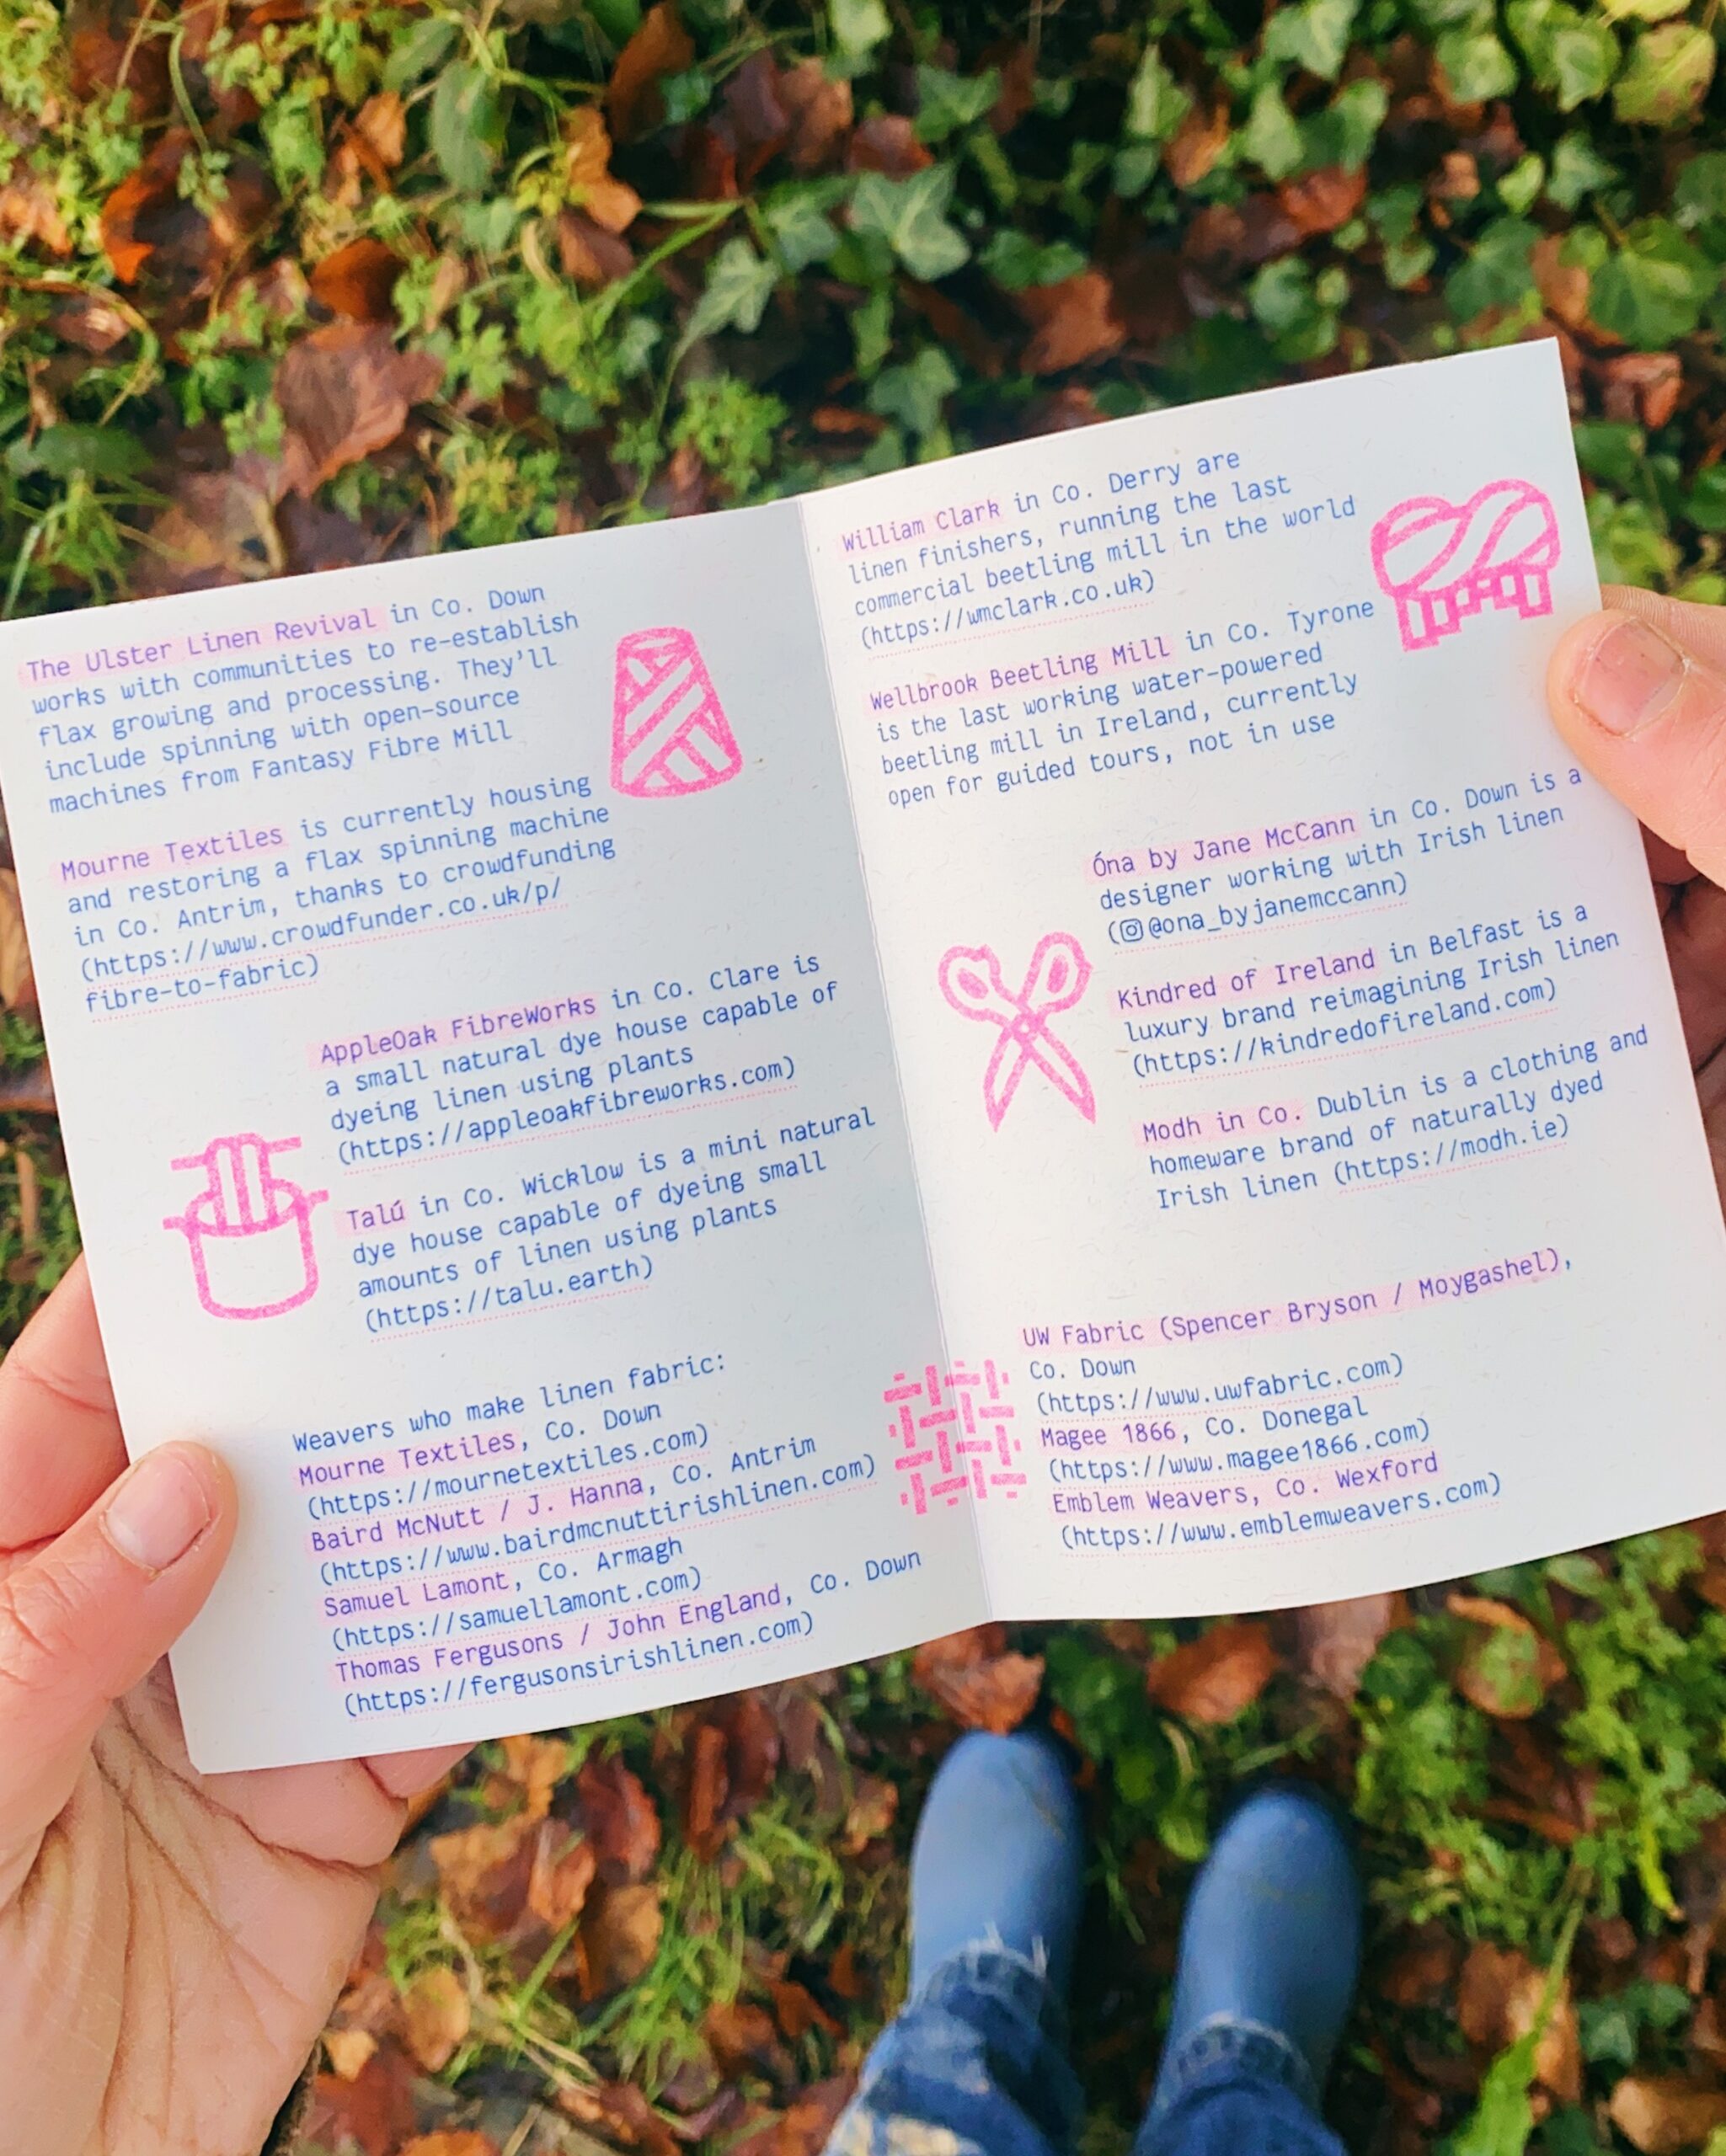 The Ulster Linen Revival in Co. Down
works with communities to re-establish
flax growing and processing. They'll
include spinning with open-source
machines from Fantasy Fibre Mill
Mourne Textiles is currently housing
and restoring a flax spinning machine
in Co. Antrim, thanks to crowdfunding
(https://www.crowdfunder.co.uk/p/
fibre-to-fabric)
AppleOak FibreWorks in Co. Clare is
a small natural dye house capable of
dyeing linen using plants
(https://appleoakfibreworks.com)
Talú in Co. Wicklow is a mini natural
dye house capable of dyeing small
amounts of linen using plants
(https://talu.earth)
Weavers who make linen fabric:
Mourne Textiles, Co. Down
(https://mournetextiles.com)
Baird McNutt / J. Hanna, Co. Antrim
(https://www.bairdmcnuttirishlinen.com)
Samuel Lamont, Co. Armagh
(https://samuellamont.com)
Thomas Fergusons / John England, Co. Down
(https://fergusonsirishlinen.com)
William Clark in Co. Derry are
linen finishers, running the last
commercial beetling mill in the world
(https://wmclark.co.uk)
Wellbrook Beetling Mill in Co. Tyrone
is the last working water-powered
beetling mill in Ireland, currently
open for guided tours, not in use
Óna by Jane McCann in Co. Down is a
designer working with Irish linen
(@ona_byjanemccann)
Kindred of Ireland in Belfast is a
luxury brand reimagining Irish linen
(https://kindredofireland.com)
Modh in Co. Dublin is a clothing and
homeware brand of naturally dyed
Irish linen (https://modh.ie)
UW Fabric (Spencer Bryson / Moygashel),
Co. Down
(https://www.uwfabric.com)
Magee 1866, Co. Donegal
(https://www.magee1866.com)
Emblem Weavers, Co. Wexford
(https://www.emblemweavers.com)